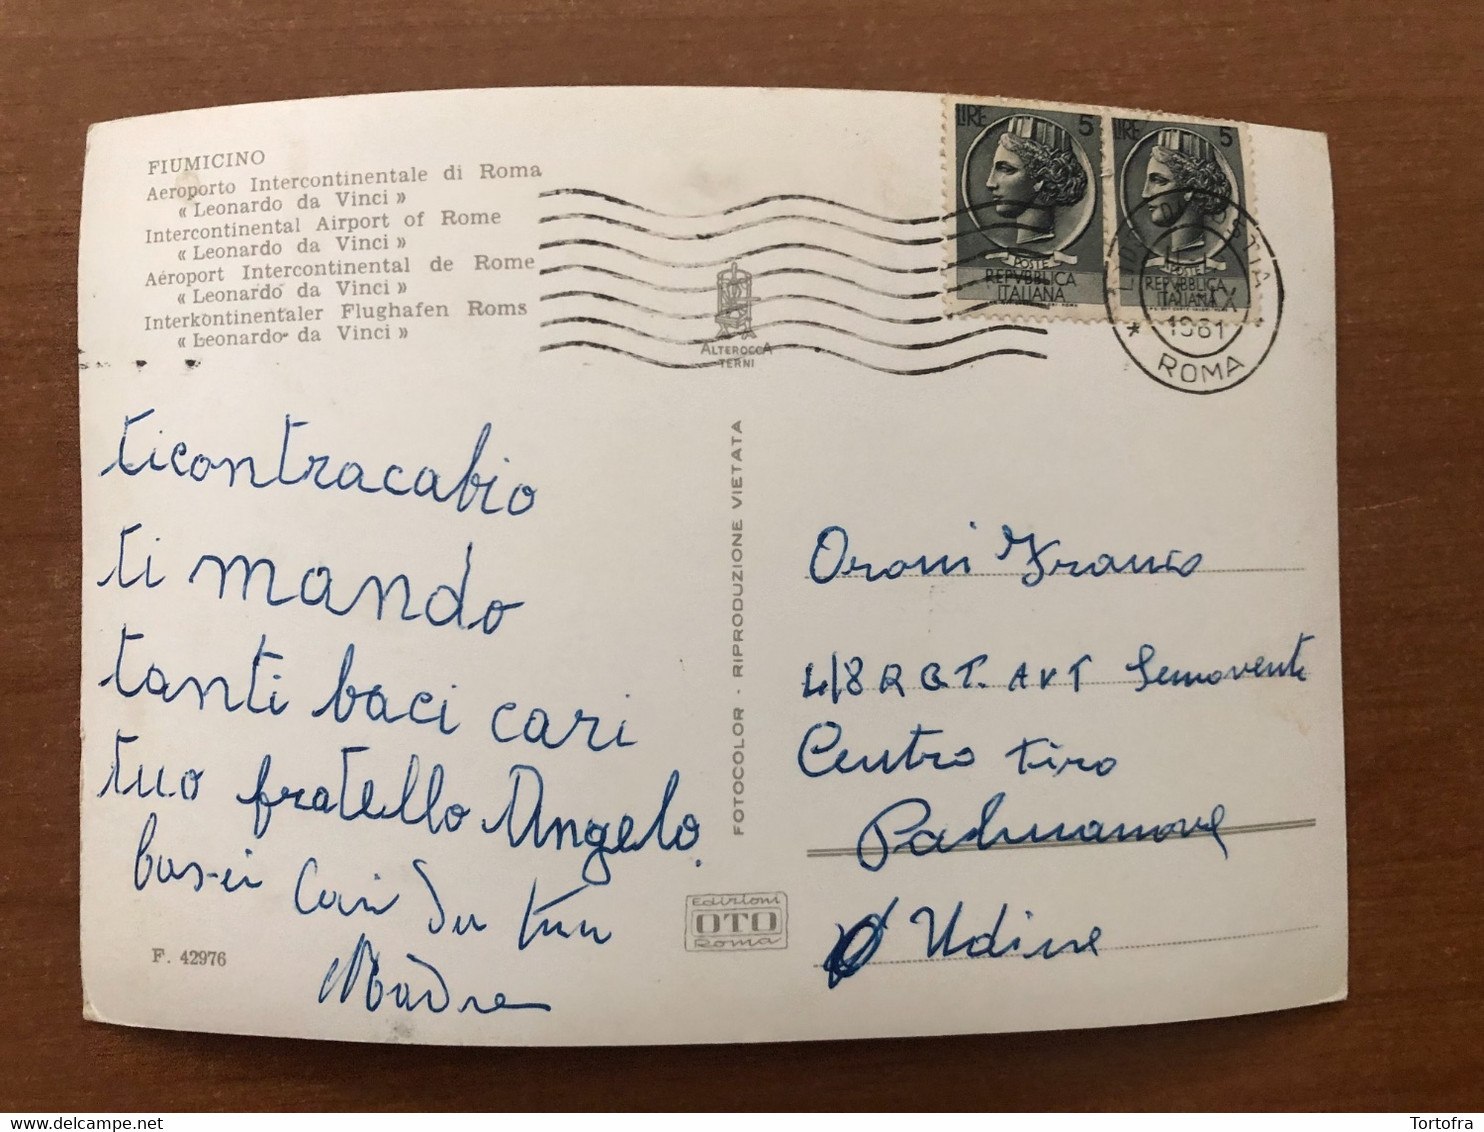 FIUMICINO
Aeroporto Intercontinentale di Roma
« Leonardo da Vinci »
Intercontinental Airport of Rome
« Leonardo da Vinci »
Aéroport Intercontinental de Rome
« Leonardo da Vinci »
Interkontinentaler Flughafen Roms
« Leonardo da Vinci »
ALTEROCCA
TERNI
LIRE 5
POSTE
REPVBBLICA
ITALIANA
LIRE 5
POSTE
REPVBBLICA
ITALIANA
LIDO DI OSTIA
1961
* ROMA
ticontracabio
ti mando
tanti baci cari
tuo fratello Angelo
cari
Madre
F. 42976
FOTOCOLOR - RIPRODUZIONE VIETATA
Edizioni
OTO
Roma
Oroni Franco
4/8 R Semovente
Centro tiro
Palmanova
Udine
Tortofra